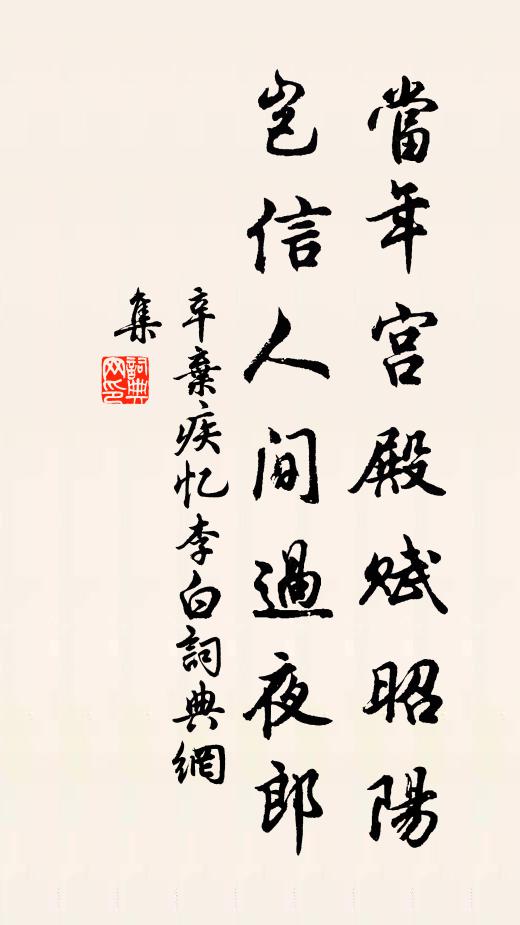 當年宮殿賦昭陽
豈信人間過夜郎
辛棄疾忆李白詞典網
集
詞典
网印